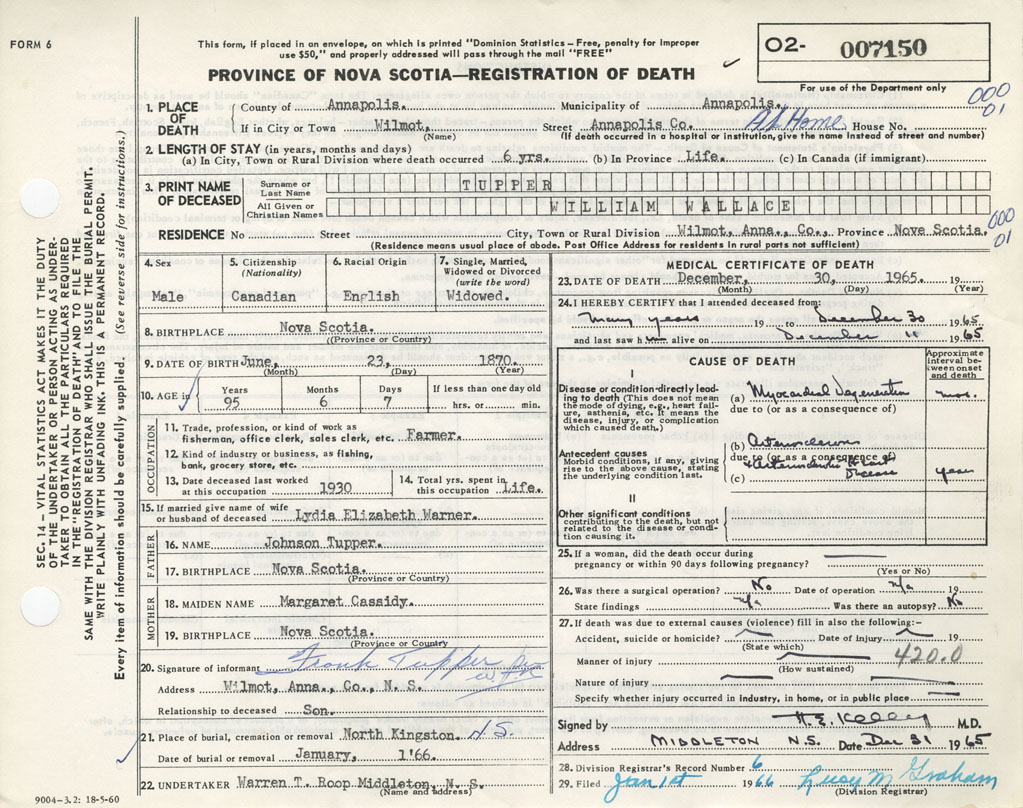 FORM 6
This form, if placed in an envelope, on which is printed "Dominion Statistics – Free, penalty for improper
use $50," and properly addressed will pass through the mail "FREE"
PROVINCE OF NOVA SCOTIA—REGISTRATION OF DEATH
O2- 007150
For use of the Department only
000
01
1. PLACE OF DEATH { County of Annapolis. Municipality of Annapolis.
If in City or Town Wilmot, Street Annapolis Co. At Home House No.
(Name) (If death occurred in a hospital or institution, give its name instead of street and number)
2. LENGTH OF STAY (in years, months and days)
(a) In City, Town or Rural Division where death occurred 6 yrs. (b) In Province Life. (c) In Canada (if immigrant)
3. PRINT NAME OF DECEASED { Surname or Last Name TUPPER
All Given or Christian Names WILLIAM WALLACE
000
01
RESIDENCE No Street City, Town or Rural Division Wilmot, Anna., Co., Province Nova Scotia.
(Residence means usual place of abode. Post Office Address for residents in rural parts not sufficient)
4. Sex
Male
5. Citizenship
(Nationality)
Canadian
6. Racial Origin
English
7. Single, Married,
Widowed or Divorced
(write the word)
Widowed.
8. BIRTHPLACE Nova Scotia.
((Province or Country)
9. DATE OF BIRTH June, 23, 1870.
(Month) (Day) (Year)
10. AGE in
Years Months Days If less than one day old
95 6 7 hrs. or min.
OCCUPATION
11. Trade, profession, or kind of work as
fisherman, office clerk, sales clerk, etc. Farmer.
12. Kind of industry or business, as fishing,
bank, grocery store, etc.
13. Date deceased last worked
at this occupation 1930
14. Total yrs. spent in
this occupation Life.
15. If married give name of wife
or husband of deceased Lydia Elizabeth Warner.
FATHER
16. NAME Johnson Tupper.
17. BIRTHPLACE Nova Scotia.
(Province or Country)
MOTHER
18. MAIDEN NAME Margaret Cassidy.
19. BIRTHPLACE Nova Scotia.
(Province or Country
20. Signature of informant Frank Tupper
Address Wilmot, Anna., Co., N. S.
Relationship to deceased Son.
21. Place of burial, cremation or removal North Kingston. N.S.
Date of burial or removal January, 1'66.
22. UNDERTAKER Warren T. Roop Middleton, N. S.
(Name and address)
9004-3.2: 18-5-60
MEDICAL CERTIFICATE OF DEATH
23. DATE OF DEATH December, 30, 1965. 19
(Month) (Day) (Year)
24. I HEREBY CERTIFY that I attended deceased from:
Many years 19 to December 30 1965
and last saw h alive on December 11 1965
CAUSE OF DEATH
Approximate
interval be-
tween onset
and death
I
Disease or condition directly lead-
ing to death (This does not mean
the mode of dying, e.g., heart fail-
ure, asthenia, etc. It means the
disease, injury, or complication
which caused death.)
(a) Myocardial Degeneration mos.
due to (or as a consequence of)
Antecedent causes
Morbid conditions, if any, giving
rise to the above cause, stating
the underlying condition last.
(b) Arteriosclerosis
due to (or as a consequence of)
(c) Heart Disease years
II
Other significant conditions
contributing to the death, but not
related to the disease or condi-
tion causing it.
25. If a woman, did the death occur during
pregnancy or within 90 days following pregnancy?
(Yes or No)
26. Was there a surgical operation? No Date of operation n/a 19
State findings n/a Was there an autopsy? No
27. If death was due to external causes (violence) fill in also the following:–
Accident, suicide or homicide? Date of injury 19
(State which)
Manner of injury 420.0
(How sustained)
Nature of injury
Specify whether injury occurred in industry, in home, or in public place
Signed by H. E. Kelley M.D.
Address MIDDLETON N.S. Date Dec 31 1965
28. Division Registrar's Record Number 6
29. Filed Jan 1st 1966 Lucy M Graham
(Division Registrar)
SEC. 14 – VITAL STATISTICS ACT MAKES IT THE DUTY
OF THE UNDERTAKER OR PERSON ACTING AS UNDER-
TAKER TO OBTAIN ALL THE PARTICULARS REQUIRED
IN THE "REGISTRATION OF DEATH" AND TO FILE THE
SAME WITH THE DIVISION REGISTRAR WHO SHALL ISSUE THE BURIAL PERMIT.
WRITE PLAINLY WITH UNFADING INK. THIS IS A PERMANENT RECORD.
Every item of information should be carefully supplied. (See reverse side for instructions.)